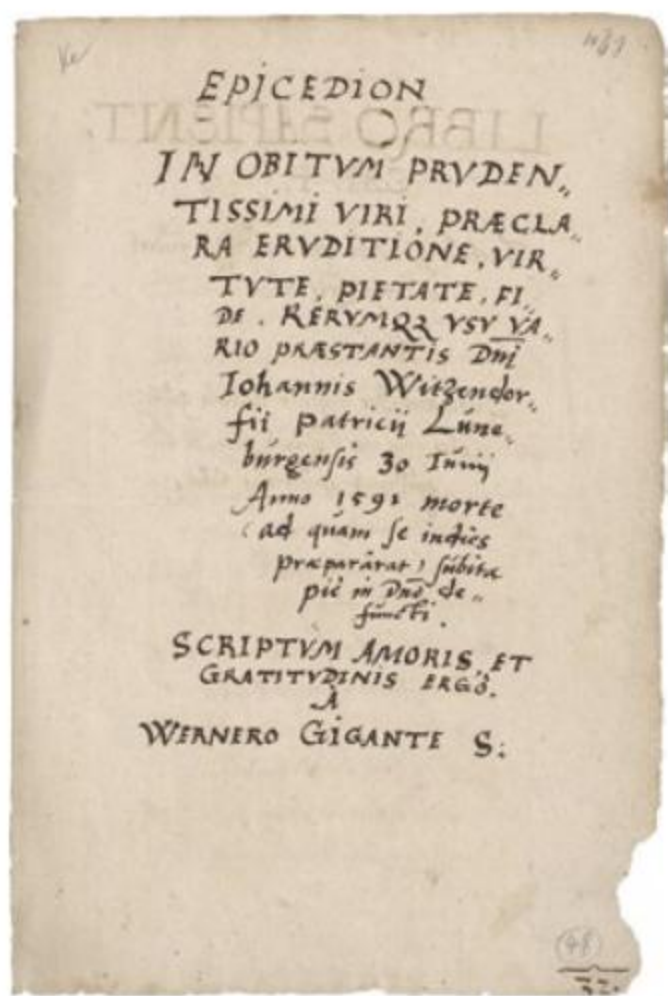 EPICEDION
IN OBITVM PRVDEN„
TISSIMI VIRI, PRÆCLA„
RA ERVDITIONE, VIR„
TVTE, PIETATE, FI„
DE, RERVMQꝫ VSV VA„
RIO PRÆSTANTIS Dnĩ
Iohannis Witzendor„
fii Patricij Lúne„
búrgensis 30 Iunij
Anno 1591 morte
(ad quàm se indies
præparârat) súbita
piè in Dnõ de„
functi.
SCRIPTVM AMORIS, ET
GRATITVDINIS ERGÒ.
A
WERNERO GIGANTE S:
(48)
32.